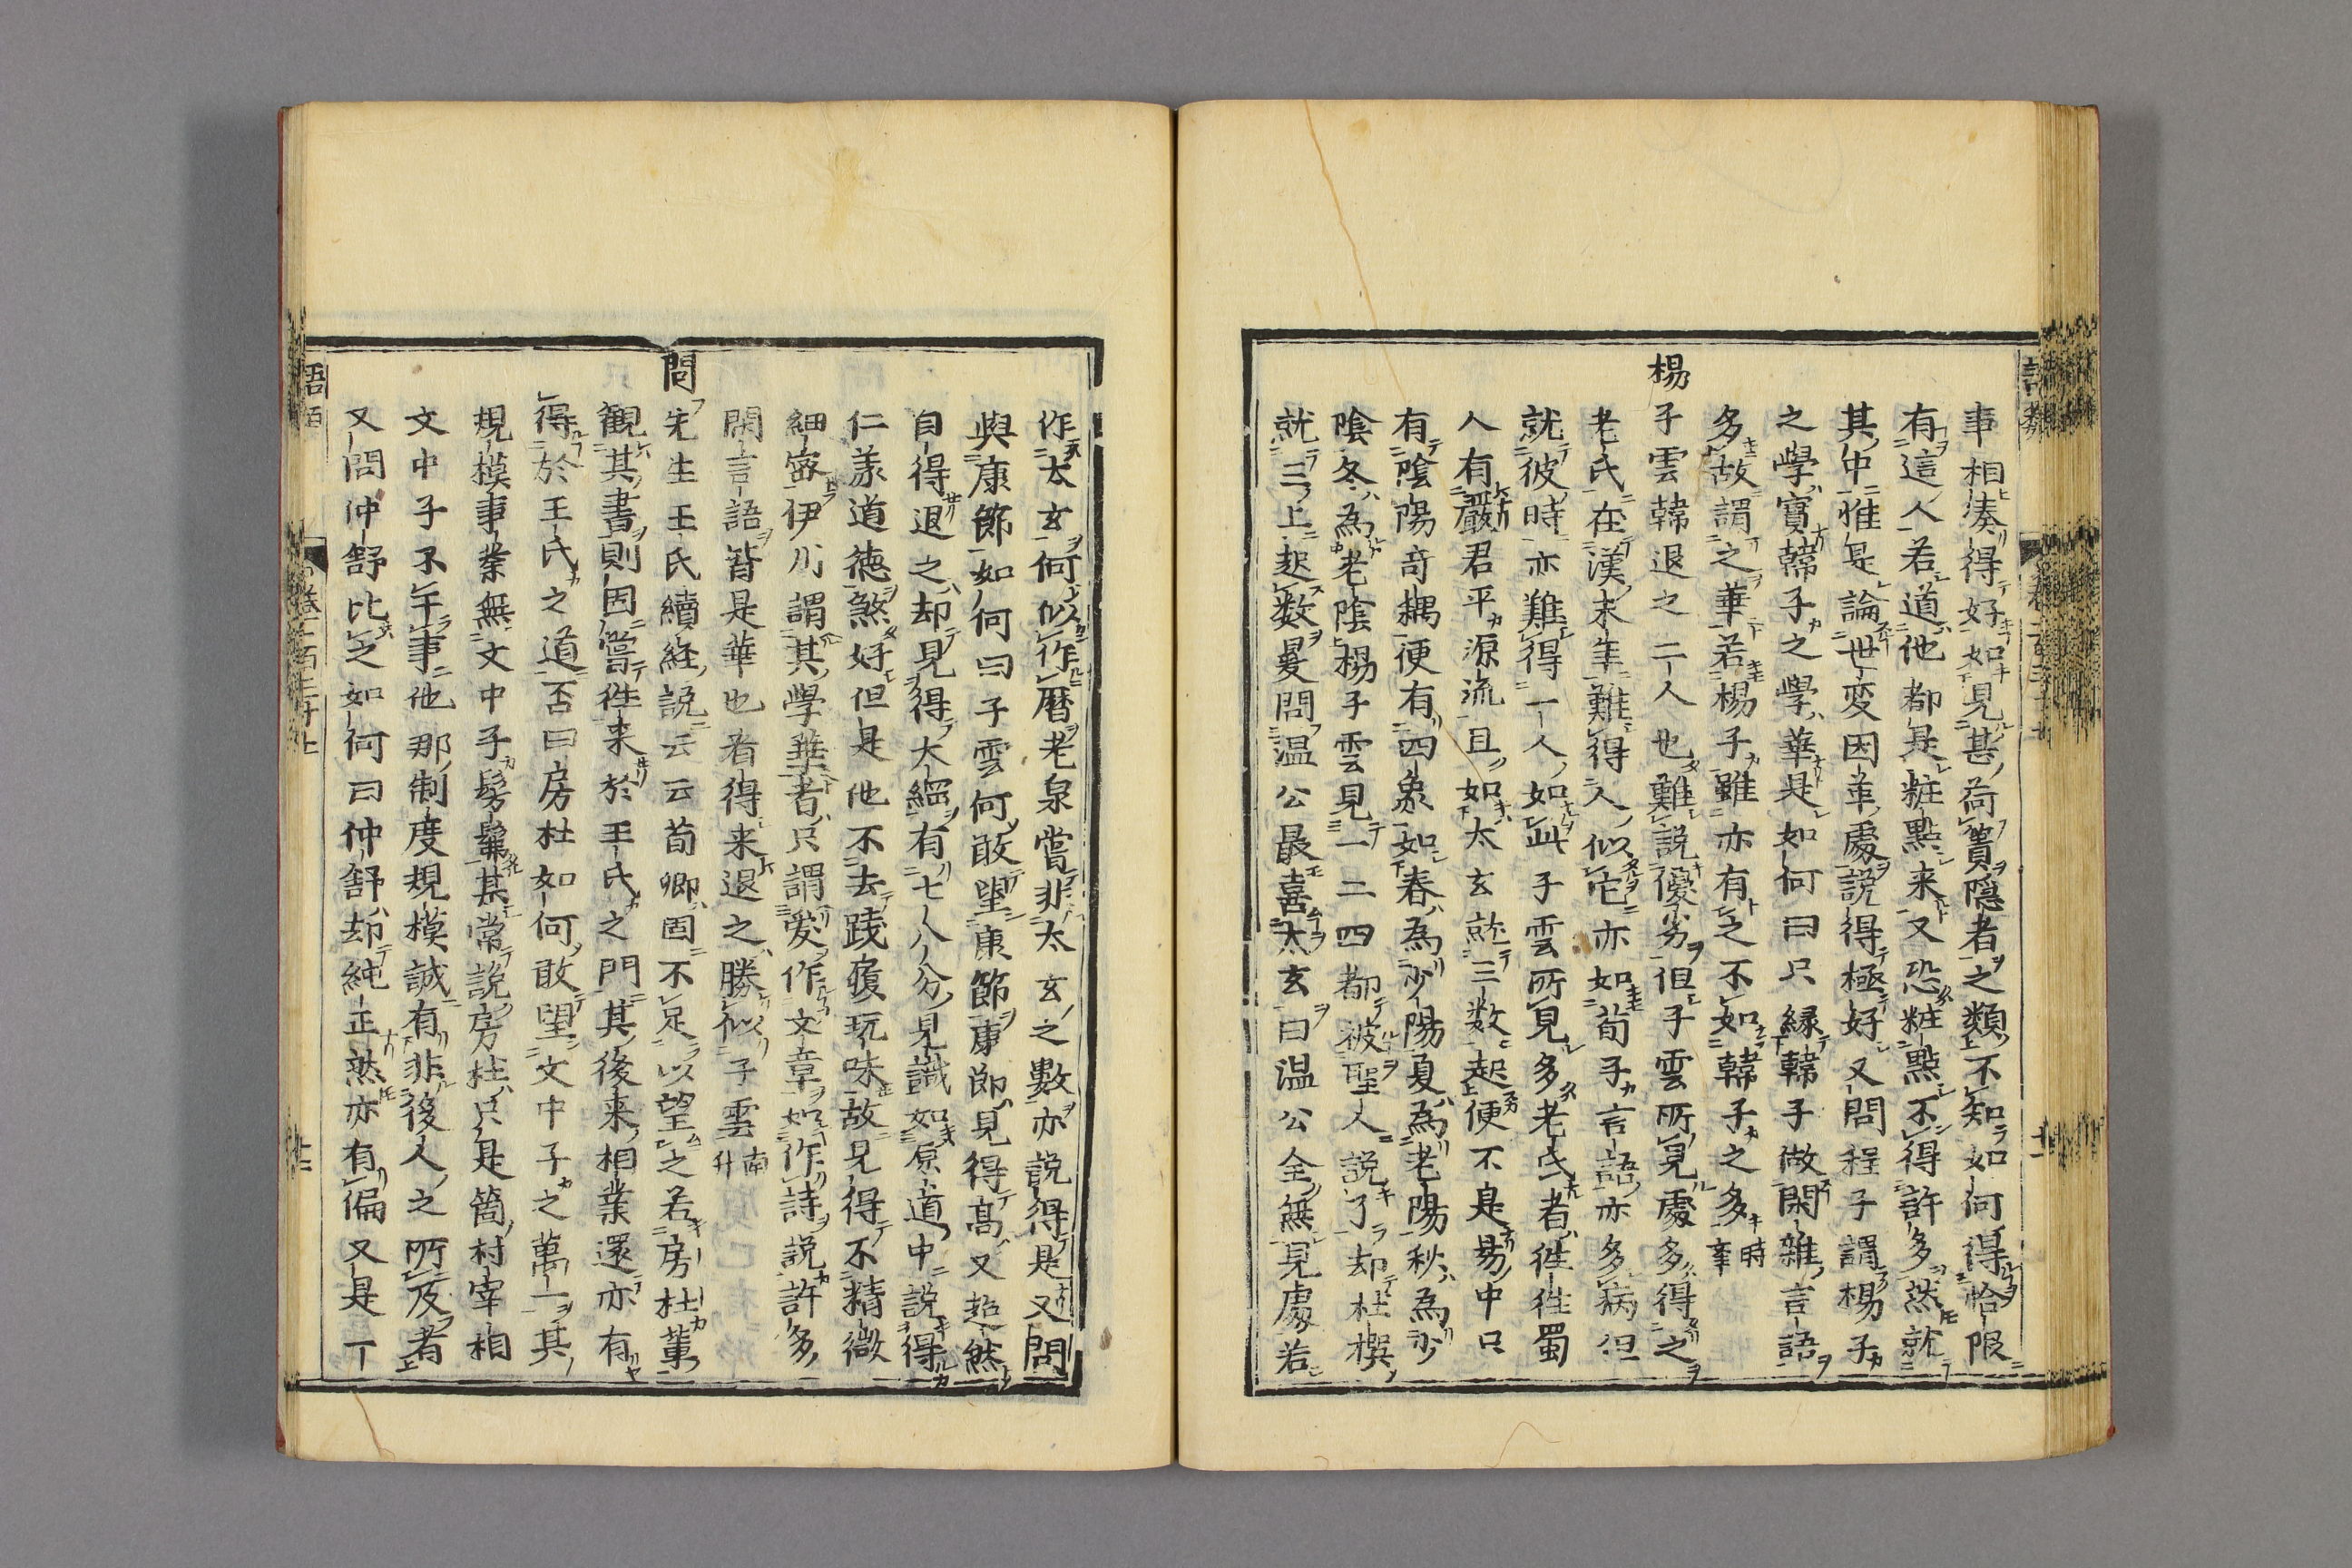 事相湊得好如見甚荷蕢隠者之類不知如何得恰限
有這人若道他都是粧點来又恐粧點不得許多然就
其中惟是論世変因革處説得極好又問程子謂楊子
之學實韓子之學華是如何曰只縁韓子做閑雜言語
多故謂之華若楊子雖亦有之不如韓子之多時舉
楊子雲韓退之二人也難説優劣但子雲所見處多得之
老氏在漢末年難得人似它亦如荀子言語亦多病但
就彼時亦難得一人如此子雲所見多老氏者徃徃蜀
人有嚴君平源流且如太玄就三数起便不是易中只
有陰陽奇耦便有四象如春為少陽夏為老陽秋為少
陰冬為老陰楊子雲見一二四都被聖人説了却杜撰
就三上起数㬰問温公最喜太玄曰温公全無見處若
作太玄何似作暦老泉嘗非太玄之數亦説得是又問
與康節如何曰子雲何敢望康節康節見得高又超然
自得退之却見得大綱有七八分見識如原道中説得
仁義道徳煞好但是他不去踐履玩味故見得不精微
細宻伊川謂其學華者只謂愛作文章如作詩説許多
閑言語皆是華也看得来退之勝似子雲南升
問先生王氏續経説云云荀卿固不足以望之若房杜軰
観其書則因嘗徃来於王氏之門其後来相業還亦有
得於王氏之道否曰房杜如何敢望文中子之萬一其
規模事業無文中子髣髴某常説房杜只是箇村宰相
文中子不干事他那制度規模誠有非後人之所及者
又問仲舒比之如何曰仲舒却純正然亦有偏又是一